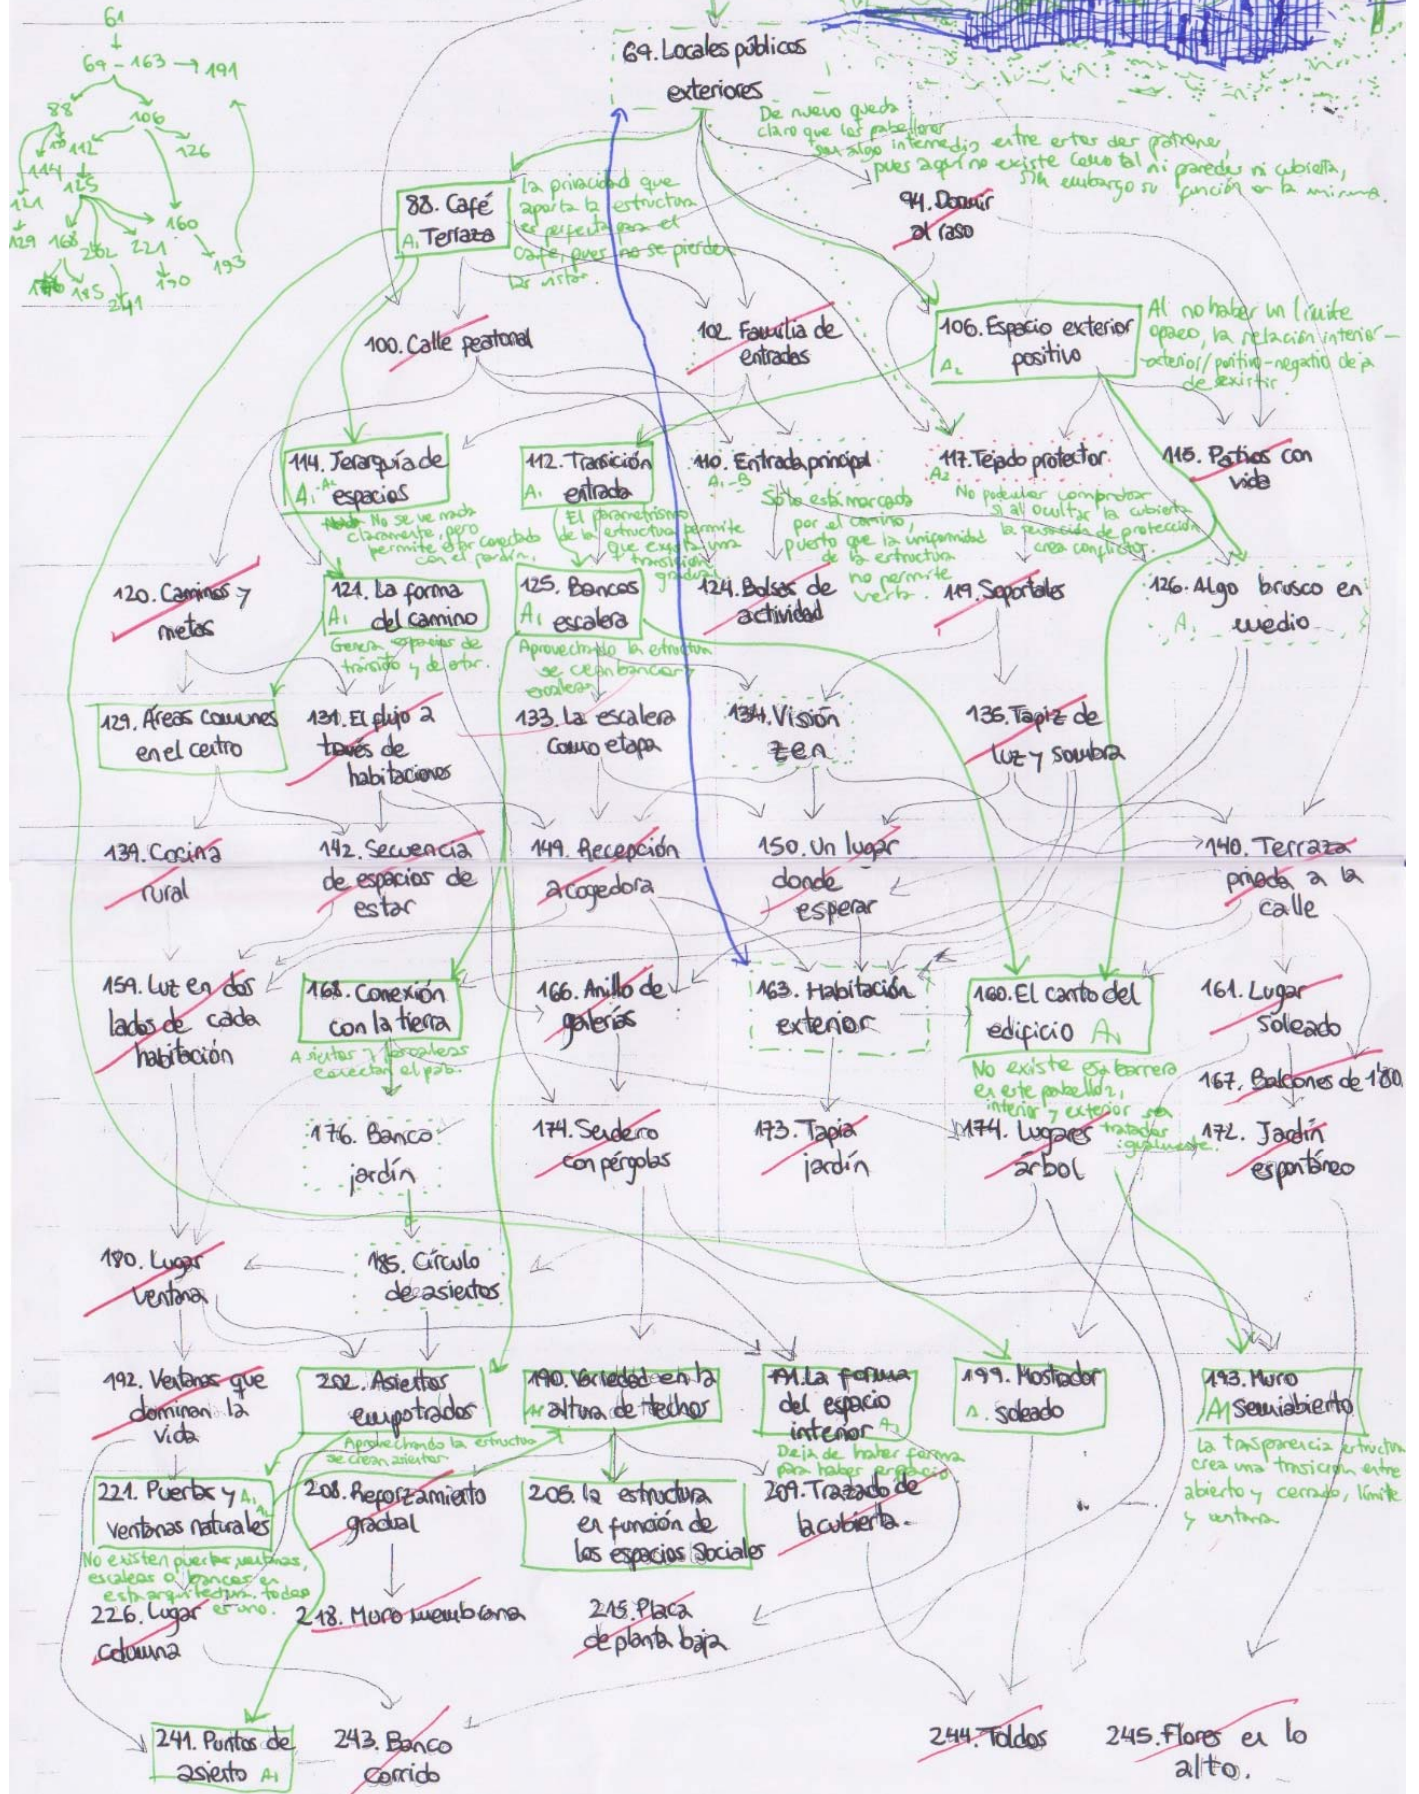 61
69 - 163 → 191
88
106
112
126
114
125
121
160
129 168 202 221
193
185
241
69. Locales públicos
exteriores
De nuevo queda
claro que los pabellones
son algo intermedio entre estos dos patrones,
pues aquí no existe como tal ni paredes ni cubierta,
sin embargo su función es la misma.
88. Café
A1 Terraza
La privacidad que
aporta la estructura
es perfecta para el
café, pues no se pierden
las vistas.
94. Dormir
al raso
100. Calle peatonal
102. Familia de
entradas
106. Espacio exterior
A2 positivo
Al no haber un límite
opaco, la relación interior-
exterior/positivo-negativo deja
de existir
114. Jerarquía de
espacios
No se ve nada
claramente, pero
permite estar conectado
con el jardín.
112. Transición
A1 entrada
El parametrismo
de la estructura permite
que exista una
transición
gradual
110. Entrada principal
A1-B
Sólo está marcada
por el camino,
puesto que la uniformidad
de la estructura
no permite
verla.
117. Tejado protector
A2
No poder comprobar
si al ocultar la cubierta
la sensación de protección
crea conflictos.
115. Patios con
vida
120. Caminos y
metas
121. La forma
A1 del camino
Genera espacios de
tránsito y de estar.
125. Bancos
A1 escalera
Aprovechando la estructura
se crean bancos y
escaleras
124. Bolsas de
actividad
119. Soportales
126. Algo brusco en
A1 medio
129. Áreas comunes
en el centro
131. El flujo a
través de
habitaciones
133. La escalera
como etapa
134. Visión
zen
135. Tapiz de
luz y sombra
139. Cocina
rural
142. Secuencia
de espacios de
estar
149. Recepción
acogedora
150. Un lugar
donde
esperar
140. Terraza
privada a la
calle
159. Luz en dos
lados de cada
habitación
168. Conexión
con la tierra
Asientos y escaleras
conectan el pab.
166. Anillo de
galerías
163. Habitación
exterior
160. El canto del
edificio A1
No existe esa barrera
en este pabellón,
interior y exterior son
tratados
igualmente.
161. Lugar
soleado
167. Balcones de 1'80
176. Banco
jardín
174. Sendero
con pérgolas
173. Tapia
jardín
174. Lugares
árbol
172. Jardín
espontáneo
180. Lugar
ventana
185. Círculo
de asientos
192. Ventanas que
dominan la
vida
202. Asientos
empotrados
Aprovechando la estructura
se crean asientos
190. Variedad en la
A1 altura de techos
191. La forma
del espacio
interior A2
Deja de haber forma
para haber espacio
199. Mostrador
A. soleado
193. Muro
A1 semiabierto
La transparencia estructura
crea una trasición entre
abierto y cerrado, límite
y ventana.
221. Puertas y A1
ventanas naturales
No existen puertas, ventanas,
escaleras o bancos en
esta arquitectura, todo
es uno.
208. Reforzamiento
gradual
205. la estructura
en función de
los espacios sociales
209. Trazado de
la cubierta.
226. Lugar
columna
218. Muro membrana
215. Placa
de planta baja
241. Puntos de
asiento A1
243. Banco
corrido
244. Toldos
245. Flores en lo
alto.